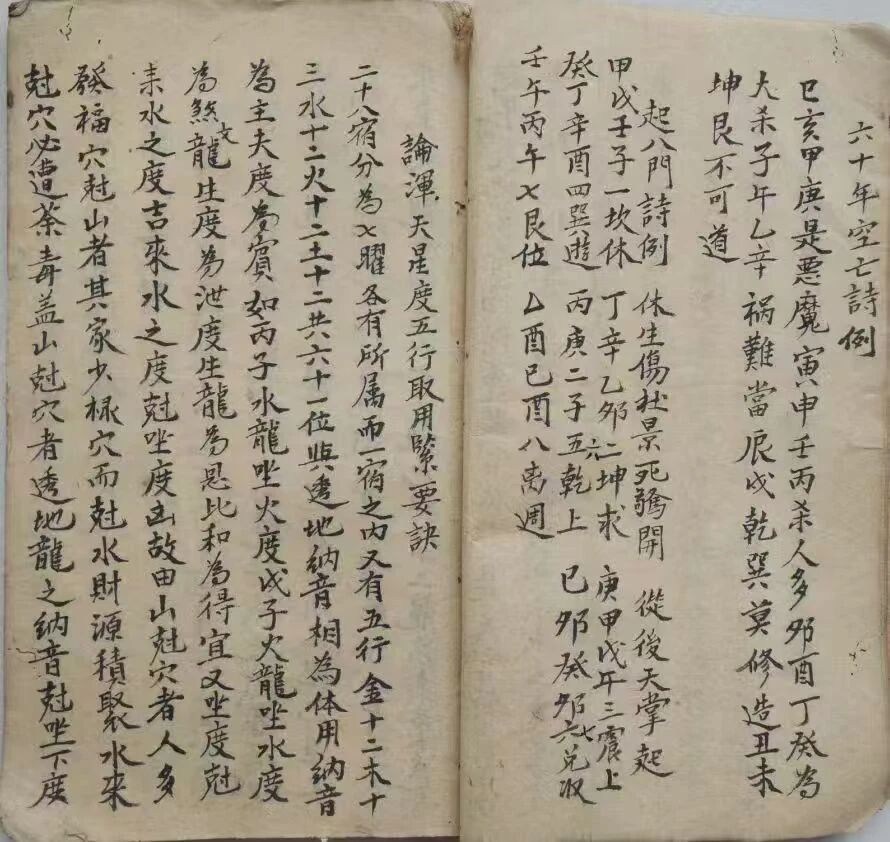 六十年空亡詩例
巳亥甲庚是悪魔寅申壬丙杀人多夘酉丁癸為
大杀子午乙辛禍難當辰戌乾巽莫修造丑未
坤艮不可道
起八門詩例 休生傷杜景死驚開 從後天掌起
甲戊壬子一坎休 丁辛乙夘二坤求 庚甲戊午三震上
癸丁辛酉四巽遊 丙庚二子五乾上 己夘癸夘六七兌収
壬午丙午七艮位 乙酉己酉八离週
論渾天星度五行取用緊要訣
二十八宿分為七曜各有所属而一宿之内又有五行金十二木十
三水十二火十二土十二共六十一位與透地納音相為体用納音
為主夫度為賓如丙子水龍坐火度戊子火龍坐水度
為煞龍生度為泄度生龍為恩比和為得宜又坐度尅
来水之度吉來水之度尅坐度凶故由山尅穴者人多
發福穴尅山者其家少祿穴而尅水財源積聚水来
尅穴必遭荼毒盖山尅穴者透地龍之納音尅坐下度